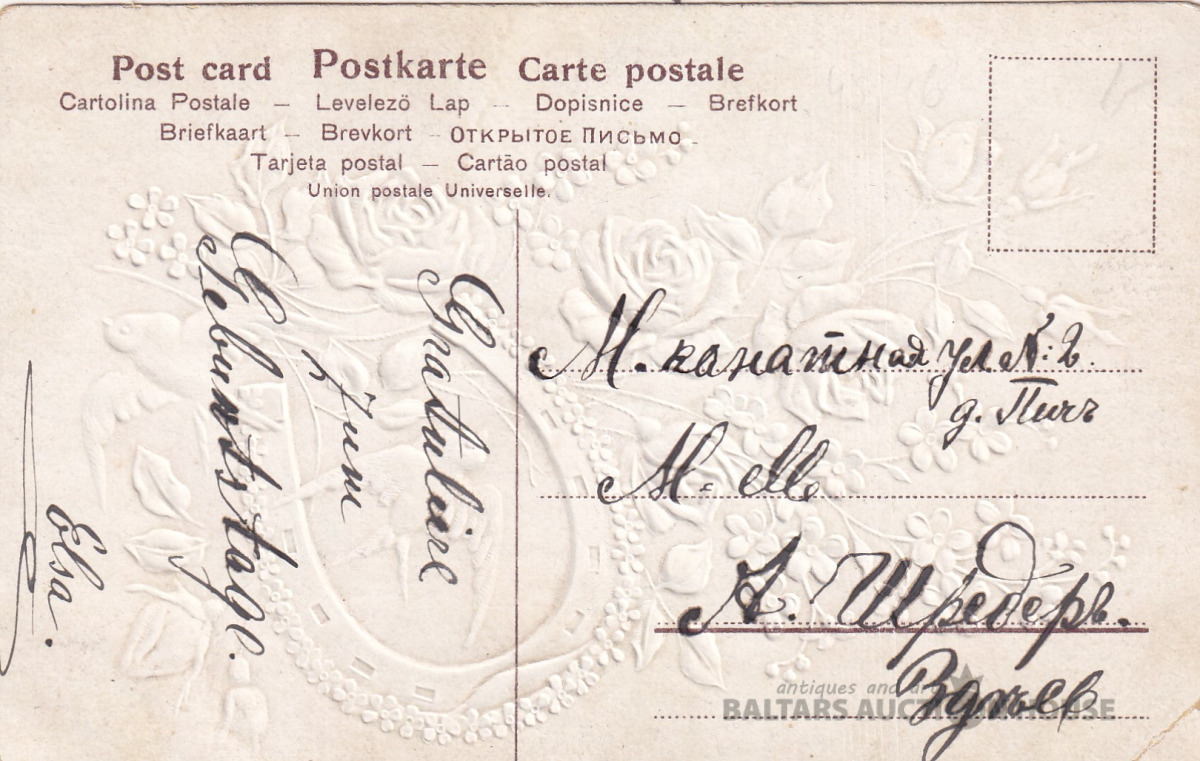 Post card Postkarte Carte postale
Cartolina Postale – Levelezö Lap – Dopisnice – Brefkort
Briefkaart – Brevkort – Открытое Письмо –
Tarjeta postal – Cartão postal
Union postale Universelle.
Gratuliere
zum
Geburtstage.
Elsa.
М. канатная ул №: 2.
д. Пичъ
M-elle
А. Шредеръ.
antiques and art
BALTARS AUCTION HOUSE